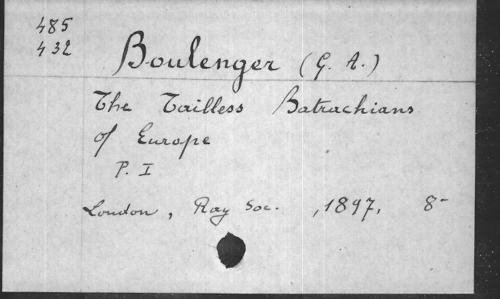 485
432
Boulenger (G. A.)
The Tailless Batrachians
of Europe
P. I
London, Ray Soc. , 1897, 8-